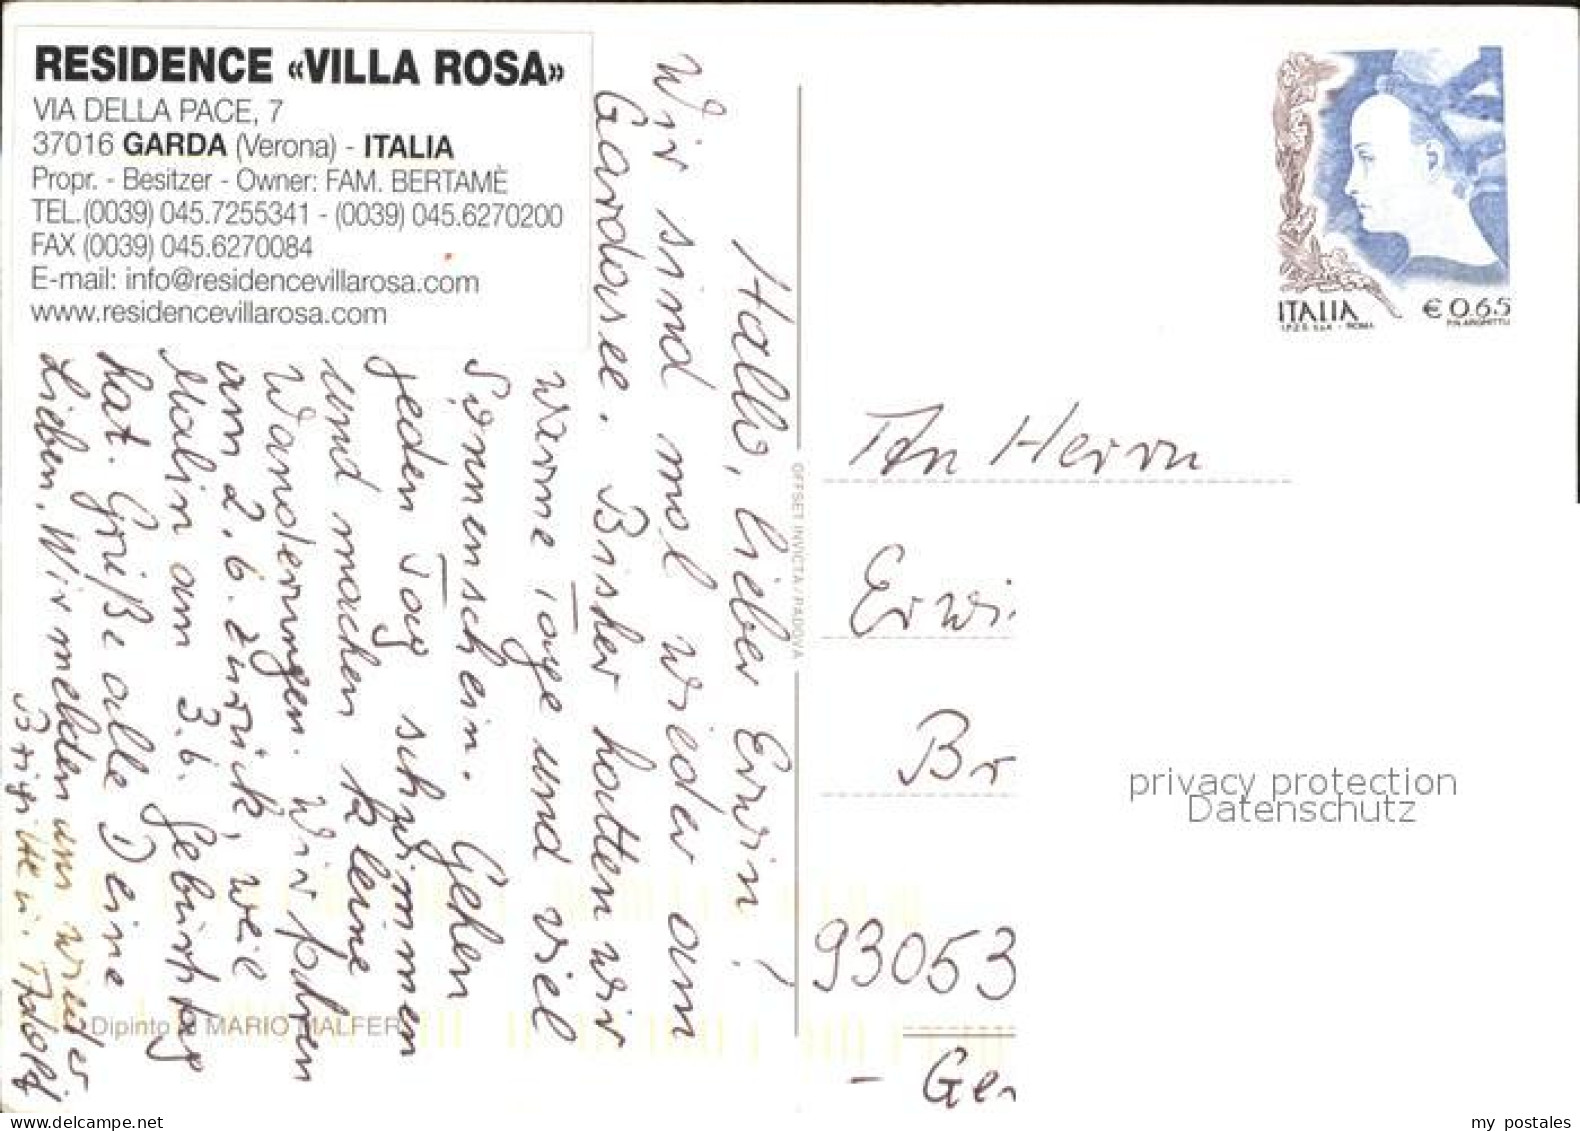 RESIDENCE «VILLA ROSA»
VIA DELLA PACE, 7
37016 GARDA (Verona) - ITALIA
Propr. - Besitzer - Owner: FAM. BERTAMÈ
TEL.(0039) 045.7255341 - (0039) 045.6270200
FAX (0039) 045.6270084
E-mail: info@residencevillarosa.com
www.residencevillarosa.com
Hallo, lieber Erwin!
Wir sind mal wieder am
Gardasee. Bisher hatten wir
warme Tage und viel
Sonnenschein. Gehen
jeden Tag schwimmen
und machen kleine
Wanderungen. Wir fahren
am 2.6. zurück, weil
Malin am 3.6. Geburtstag
hat. Grüße alle Deine
Lieben. Wir melden uns wieder
Brigitte u. Adolf
Dipinto di MARIO MALFER
OFFSET INVICTA / PADOVA
ITALIA
€ 0,65
I.P.Z.S. S.p.A. - ROMA
An Herrn
Erwi
Br
93053
- Ger
privacy protection
Datenschutz
my postales